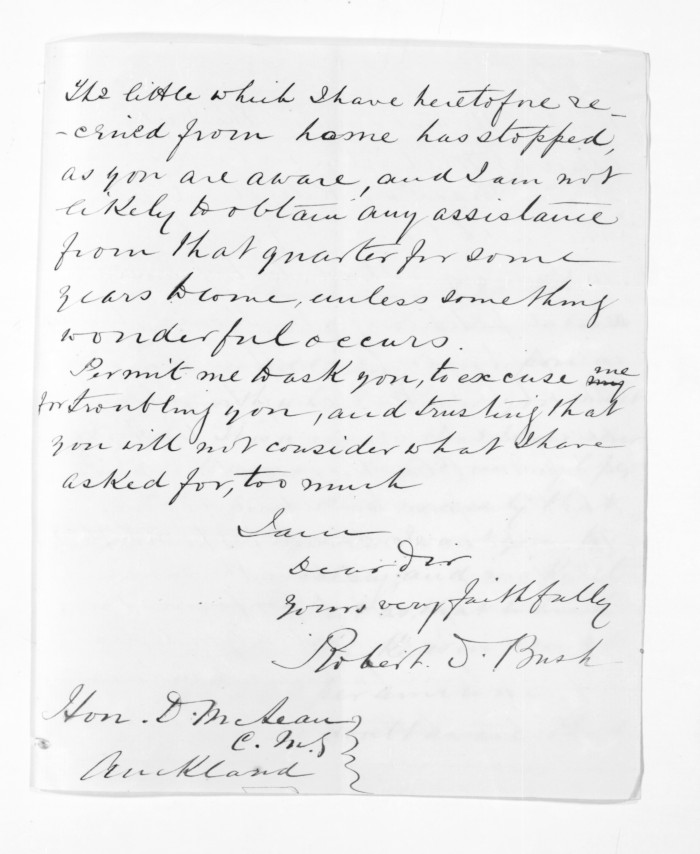 The little which I have heretofore re-
-ceived from home has stopped,
as you are aware, and I am not
likely to obtain any assistance
from that quarter for some
years to come, unless something
wonderful occurs.
Permit me to ask you, to excuse my me
for troubling you, and trusting that
you will not consider what I have
asked for, too much
I am
Dear Sir
Yours very faithfully
Robert. S. Bush
Hon. D. McLean
C. M. G
Auckland